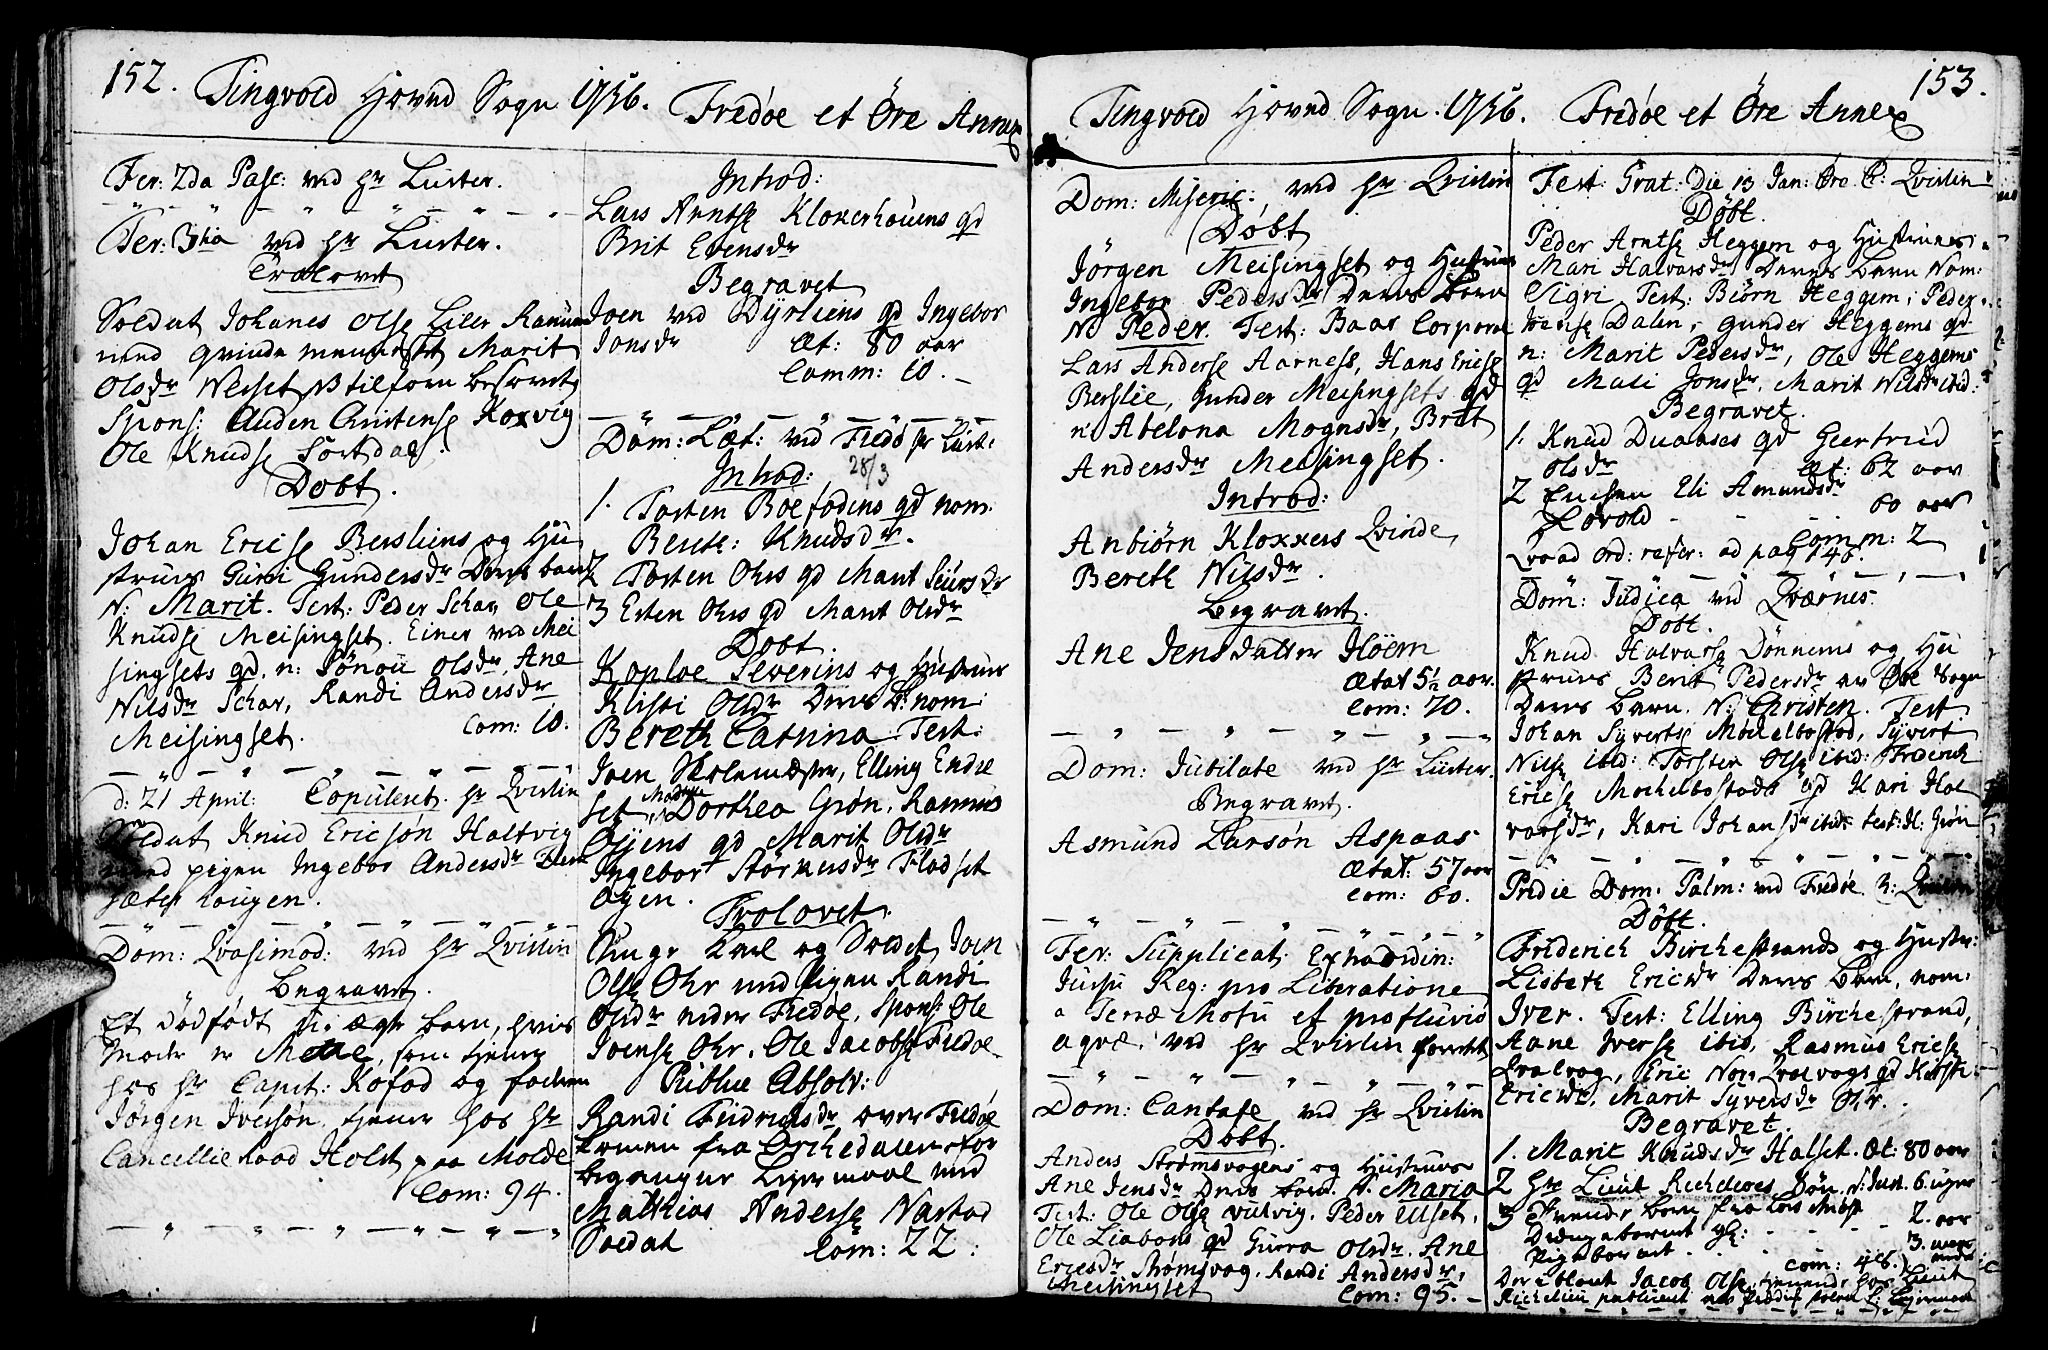 152. Tingvold Hovud Sogn 1756. Fredøe et Öre Annex
Fer: 2da Pasc: ved Hr Luster.
Fer: 3tia ved Hr Luster.
Trolovet
Soldat Johanes Olsø
med Qvindemennisket Marit
Olsdr Neisset
Spons: Auden Christensø Koxvig
Ole Knudsø Tortdal.
Døbt.
Johan Ericsø Bersliens og Hu
strues Guri Gundersdr Deres barn
N: Marit. Test: Peder Schar, Ole
Knudsø Meisingset. Einer ved Mei
singsets qd. n: Olsdr, Ane
Nilsdr Schar, Randi Andersdr
Meisingset. Com: 10.
d: 21 April: Copuleret. Hr Qvislin
Soldat Knud Ericsøn Haltvig
med pigen Ingebor Andersdr
sæterhougen.
Dom: Qvasimod: ved Hr Qvislin
Begravet.
Et dødfødt barn, hvis
Moder er Mette, som tjener
hos Hr Capit: Kofod og faderen
Jörgen Iversøn, tjener hos Hr
Cancellie Raad Holst paa Molde
Com: 94.
Introd:
Lars Arntsø Kloxerhouens qd
Brit Evensdr
Begravet
Joen ved Dyrliens qd Ingebor
Jonsdr Æt: 80 aar
Comm: 10.
Dom: Læt: ved Fredø Hr Lust:
Introd: 28/3
1. Torsten Boefodens qd nom:
Bereth: Knudsdr.
2 Torsten Ohrs qd Marit Siursdr
3 Esten Ohrs qd Marit Olsdr
Døbt.
Koploe Severins og Hustrues
Kristi Olsdr Deres B: nom:
Bereth Catrina. Test:
Joen Skolemester, Elling Endre
set, Madme Dorthea Grøn, Rasmus
Øyens qd Marit Olsdr
Ingebor Størkersdr Fladset
øyen.
Trolovet.
Unge Karl og Soldat Joen
Olsø Ohr med Pigen Randi
Olsdr neder Fredøe, Spons: Ole
Joensø Ohr. Ole Jacobsø Fredøe.
Publice Absolv:
Randi Fridrichsdr over Fredøe
kommen fra Orchedalen for
begangne Lejermaal med
Mathias Andersø Narstad
Soldat Com: 22:
153.
Tingvold Hovud Sogn. 1756. Fredøe et Öre Annex
Dom: Miseric:, ved Hr Qvislin
Døbt
Jörgen Meisingset og Hustrues
Ingebor Pedersdr Deres Barn
N: Peder. Test: Baar Corporal
Lars Andersø Aarness, Hans Ericsø
Berslie, Gunder Meisingsets qd
n: Abelona Mognsdr, Brit
Andersdr Meisingset.
Introd:
Anbiørn Kloxxers Qvinde,
Bereth Nilsdr.
Begravet.
Ane Jensdatter Høem
Ætat 5 1/2 aar.
Com: 70.
Dom: Jubilate ved Hr Luster.
Begravet.
Asmund Larsøn Aspaas
Ætat: 57 aar
Com: 60.
Fer: Supplicat: Extraordin:
Jussu Reg: pro Liberatione
a Terræ Motu et profluvio
aqvæ: ved Hr Qvislin
Dom: Cantate ved Hr Qvislin
Døbt.
Anders Strømsvogens og Hustrues
Ane Jensdr Deres barn. N. Maria
Test: Ole Olsø Peder
Ole Liabøns qd Gurra Olsdr. Ane
Ericsdr Strømsvog. Randi Andersdr,
Meisingset Com: 95.
Fest: Grat: Die 13 Jan: Øre. C: Qvislin
Døbt.
Peder Arntsø Heggem og Hustrues
Mari Halvarsdr, Deres Barn Nom:
Sigri Test: Biørn Heggem, Peder
Dalen, Gunder Heggems qd
n: Marit Pedersdr, Ole Heggems
qd Mali Jonsdr, Marit Nilsdr ibid:
Begravet.
1. Knud Duaases qd Geertrud
Olsdr Æt: 62 aar
2 Enchen Eli Amundsdr
Løvold 60 aar
Comm: 2
Qvoad ord: refer: ad pag 146.
Dom: Judica ved Qværnes.
Døbt.
Knud Halvarsø Dönnems og Hu
strues Berit Pedersdr av Øre Sogn
Deres barn. N: Christen. Test
Johan Syvertsø Mochelbostad, Syvert
Nilsø ibid: Torsten Olsø ibid: Frederich
Ericsø Mochelbostads qd Kari Hal
varsdr, Kari Johansdr ibid: test: H: Grøn
Pridie Dom. Palm: ved Fredøe H: Qvislin
Døbt.
Friderich Birchestrands og Hustr:
Lisbeth Ericsdr Deres Barn, nom:
Iver. Test: Elling Birchestrand,
Aane Iversø ibid, Rasmus Ericsø
Qvalvog, Eric Nor: Qvalvogs qd Kirsti
Ericsdr, Marit Syversdr Ohr.
Begravet.
1. Marit Knudsdr Halset. Æt: 80 aar
2 Hr Lieut Richelieus Søn. 6 uger
3 barn fra 2. aar
Drengebarnet
Pigebarnet 3.
Com: 46.
Der iblant Jacob Olsø tjenende hos Lieut
Richelieu publicert